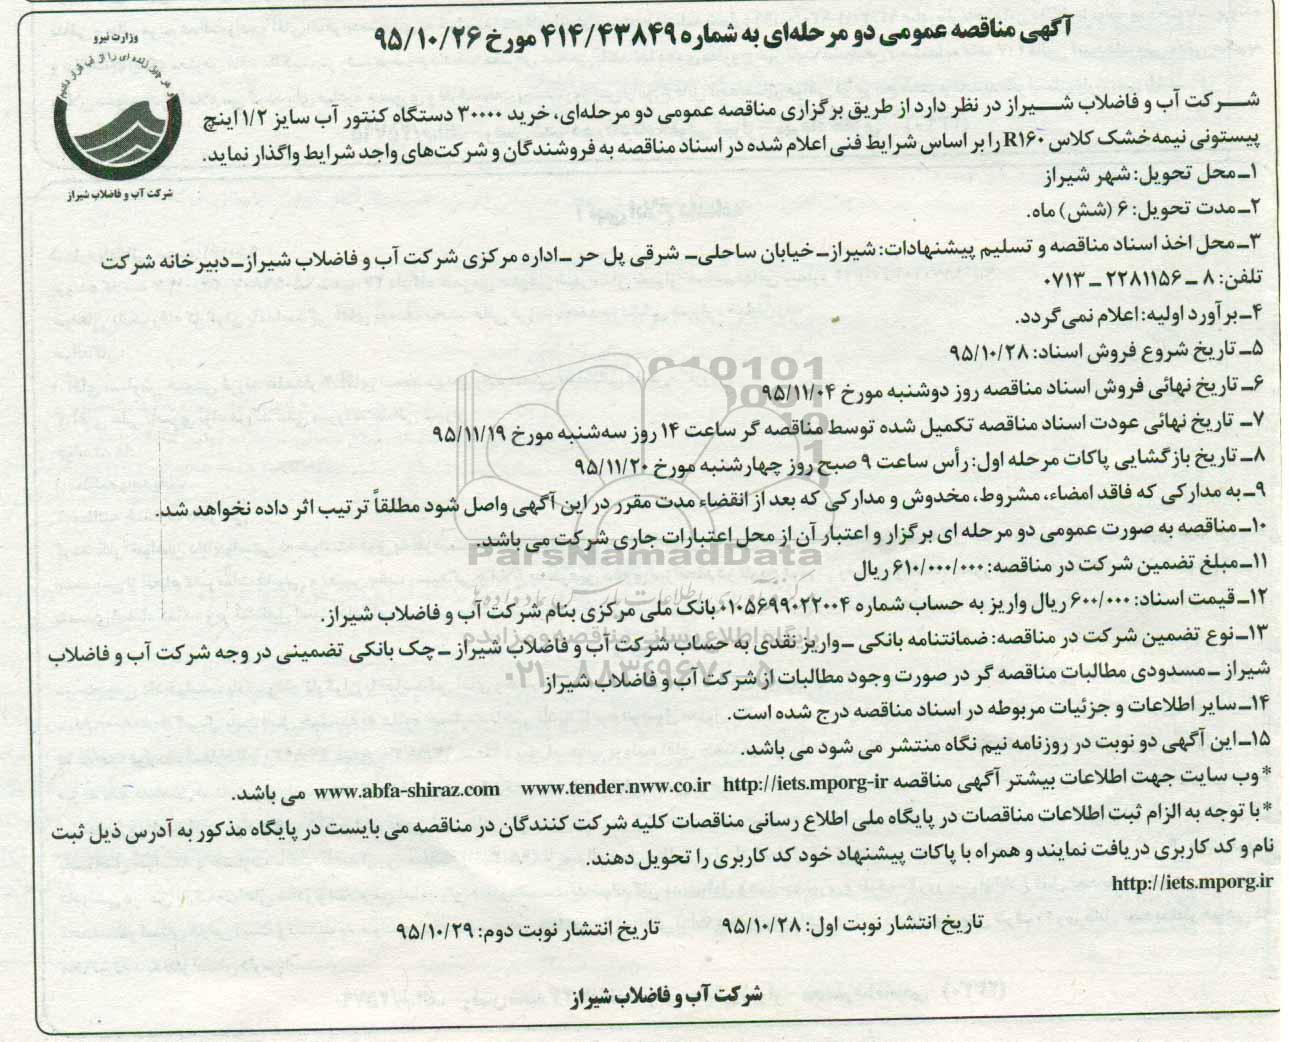 آگهی مناقصه عمومی دو مرحله‌ای به شماره ۴۱۴/۴۳۸۴۹ مورخ ۹۵/۱۰/۲۶
وزارت نیرو
شرکت آب و فاضلاب شیراز
شرکت آب و فاضلاب شیراز در نظر دارد از طریق برگزاری مناقصه عمومی دو مرحله‌ای، خرید ۳۰۰۰۰ دستگاه کنتور آب سایز ۱/۲ اینچ
پیستونی نیمه‌خشک کلاس R۱۶۰ را بر اساس شرایط فنی اعلام شده در اسناد مناقصه به فروشندگان و شرکت‌های واجد شرایط واگذار نماید.
۱ـ محل تحویل: شهر شیراز
۲ـ مدت تحویل: ۶ (شش) ماه.
۳ـ محل اخذ اسناد مناقصه و تسلیم پیشنهادات: شیراز ـ خیابان ساحلی ـ شرقی پل حر ـ اداره مرکزی شرکت آب و فاضلاب شیراز ـ دبیرخانه شرکت
تلفن: ۸ ـ ۲۲۸۱۱۵۶ ـ ۰۷۱۳
۴ـ برآورد اولیه: اعلام نمی‌گردد.
۵ـ تاریخ شروع فروش اسناد: ۹۵/۱۰/۲۸
۶ـ تاریخ نهائی فروش اسناد مناقصه روز دوشنبه مورخ ۹۵/۱۱/۰۴
۷ـ تاریخ نهائی عودت اسناد مناقصه تکمیل شده توسط مناقصه گر ساعت ۱۴ روز سه‌شنبه مورخ ۹۵/۱۱/۱۹
۸ـ تاریخ بازگشایی پاکات مرحله اول: رأس ساعت ۹ صبح روز چهارشنبه مورخ ۹۵/۱۱/۲۰
۹ـ به مدارکی که فاقد امضاء، مشروط، مخدوش و مدارکی که بعد از انقضاء مدت مقرر در این آگهی واصل شود مطلقاً ترتیب اثر داده نخواهد شد.
۱۰ـ مناقصه به صورت عمومی دو مرحله ای برگزار و اعتبار آن از محل اعتبارات جاری شرکت می باشد.
ParsNamadData
۱۱ـ مبلغ تضمین شرکت در مناقصه: ۶۱۰/۰۰۰/۰۰۰ ریال
۱۲ـ قیمت اسناد: ۶۰۰/۰۰۰ ریال واریز به حساب شماره ۰۱۰۵۶۹۹۰۲۲۰۰۴ بانک ملی مرکزی بنام شرکت آب و فاضلاب شیراز.
پایگاه اطلاع رسانی مناقصه و مزایده
۱۳ـ نوع تضمین شرکت در مناقصه: ضمانتنامه بانکی ـ واریز نقدی به حساب شرکت آب و فاضلاب شیراز ـ چک بانکی تضمینی در وجه شرکت آب و فاضلاب
شیراز ـ مسدودی مطالبات مناقصه گر در صورت وجود مطالبات از شرکت آب و فاضلاب شیراز
۰۲۱-۸۸۳۴۹۶۷۰-۵
۱۴ـ سایر اطلاعات و جزئیات مربوطه در اسناد مناقصه درج شده است.
۱۵ـ این آگهی دو نوبت در روزنامه نیم نگاه منتشر می شود می باشد.
* وب سایت جهت اطلاعات بیشتر آگهی مناقصه http://iets.mporg-ir www.tender.nww.co.ir www.abfa-shiraz.com می باشد.
* با توجه به الزام ثبت اطلاعات مناقصات در پایگاه ملی اطلاع رسانی مناقصات کلیه شرکت کنندگان در مناقصه می بایست در پایگاه مذکور به آدرس ذیل ثبت
نام و کد کاربری دریافت نمایند و همراه با پاکات پیشنهاد خود کد کاربری را تحویل دهند.
http://iets.mporg.ir
تاریخ انتشار نوبت اول: ۹۵/۱۰/۲۸ تاریخ انتشار نوبت دوم: ۹۵/۱۰/۲۹
شرکت آب و فاضلاب شیراز